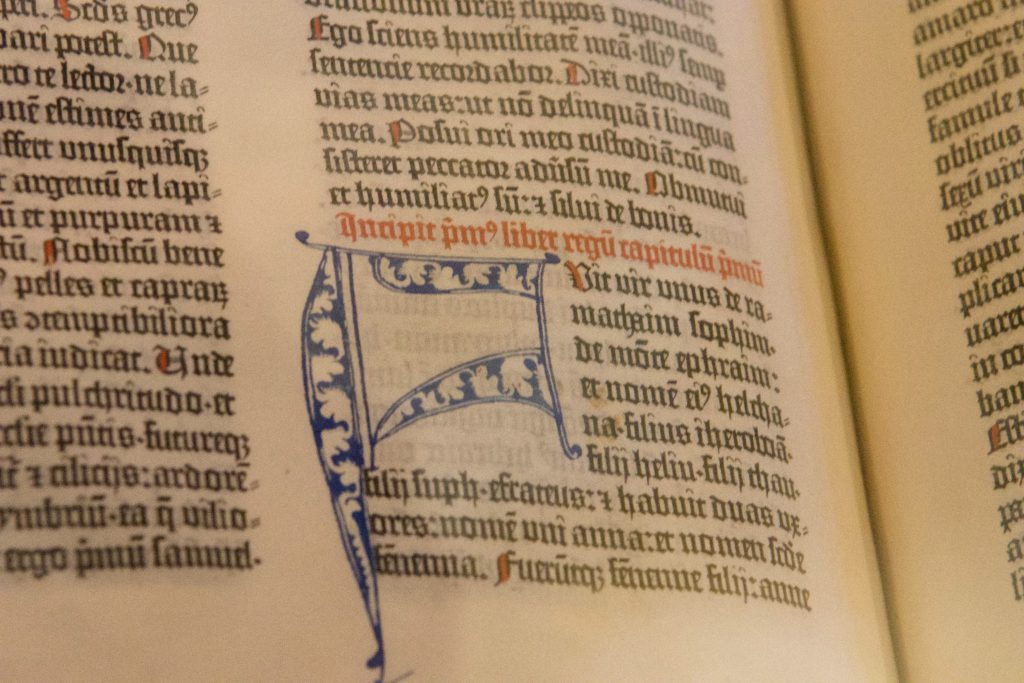 Scd̄s grecꝰ
pari potest. Que
ro te lector·ne la-
onē estimes anti-
ffert unusquisqꝫ
argentū et lapi-
ū et purpuram ⁊
tū. Nobiscū bene
ꝰ pelles et capraꝝ
s ↄtemptibiliora
ia iudicat. Unde
pulchritudo·et
pn̄tis·futureqꝫ
⁊ cilicijs: ardorē-
ymbriū·ea q̄ vilio-
ergo p̄mū samuel·
oraꝝ clippeos opponatis.
Ego sciens humilitatē meā·illiꝰ semp
sentencie recordabor. Dixi custodiam
vias meas:ut nō delinquā ī lingua
mea. Posui ori meo custodiā:cū con-
sisteret peccator adūsū me. Obmutui
et humiliatꝰ sū:⁊ silui de bonis.
Incipit p̄mꝰ liber regū capitulū p̄mū
Fuit vir unus de ra-
mathaim sophim·
de mōte ephraim:
et nomē eiꝰ helcha-
na·filius iheroboā·
filij heliu·filij thau·
filij suph·efrateus:⁊ habuit duas ux-
ores:nomē uni anna:et nomen scd̄e
fēnenna. Fuerūtqꝫ fēnenne filij:anne
amaro
largiter:
ercituū si
famule
oblitus
sexū viri
vite eiu
caput
plicar
uaret
in co
ban
Est
dix